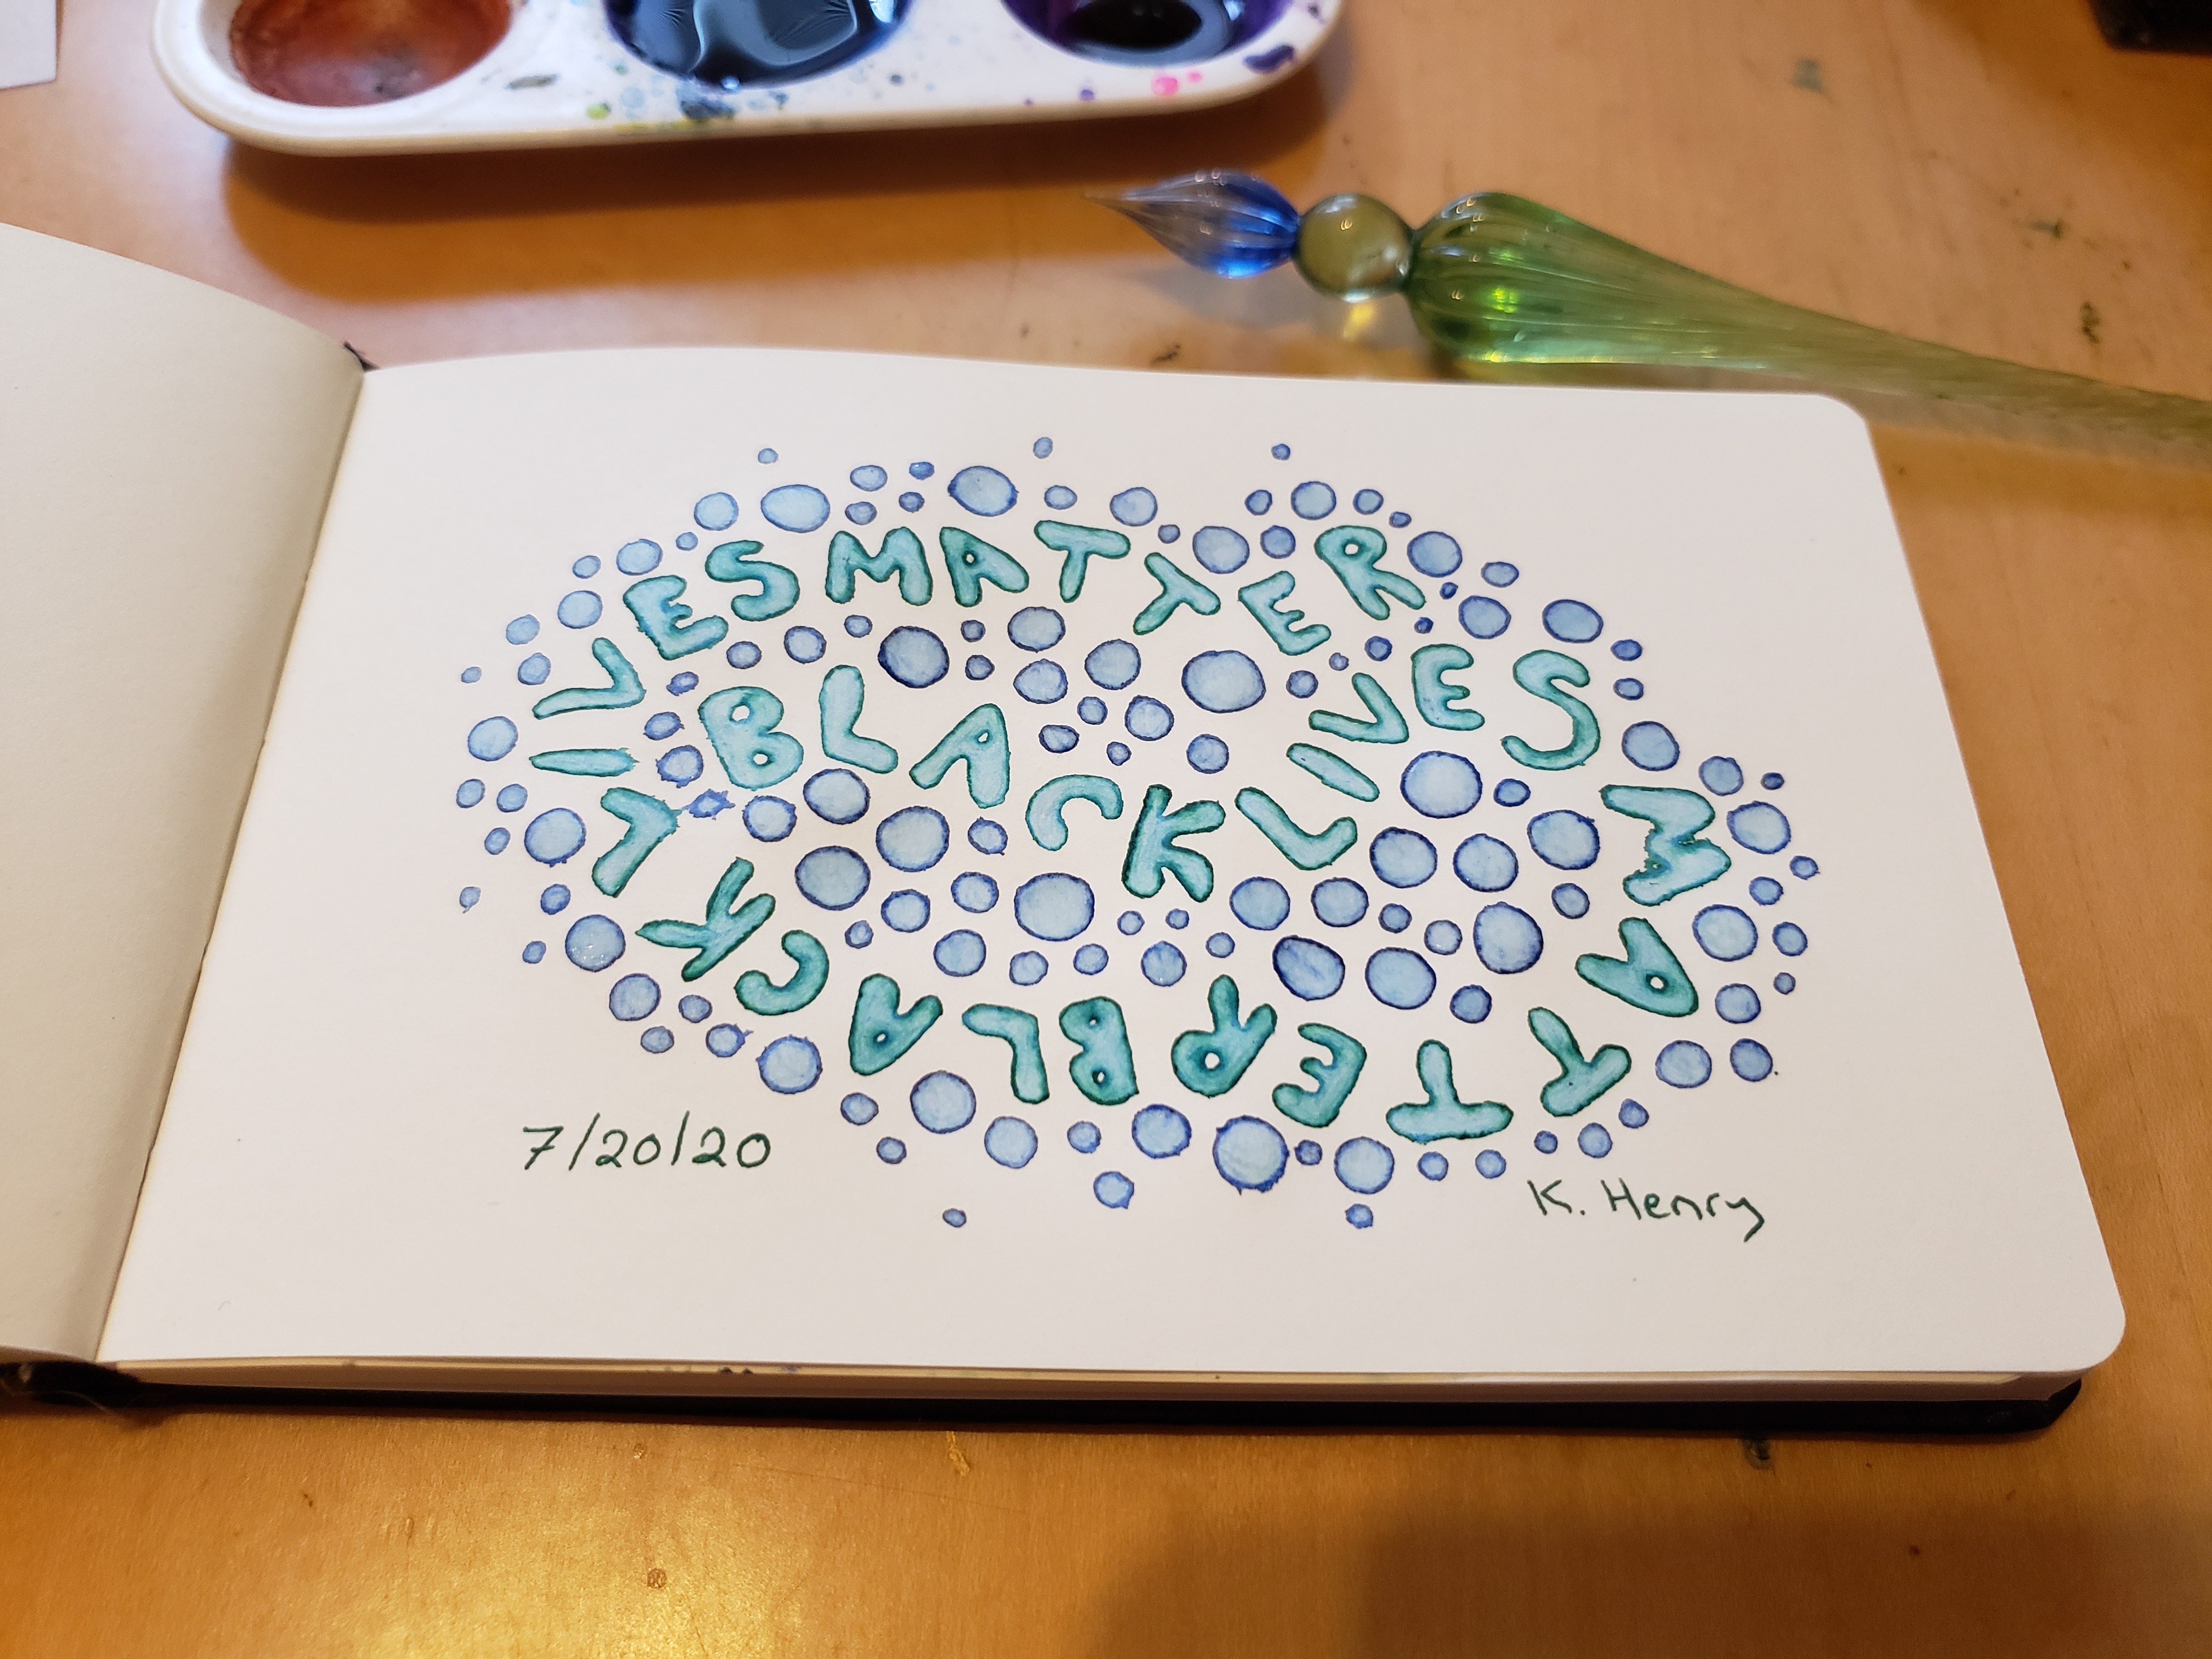 BLACK LIVES MATTER BLACK LIVES MATTER
7/20/20
K. Henry